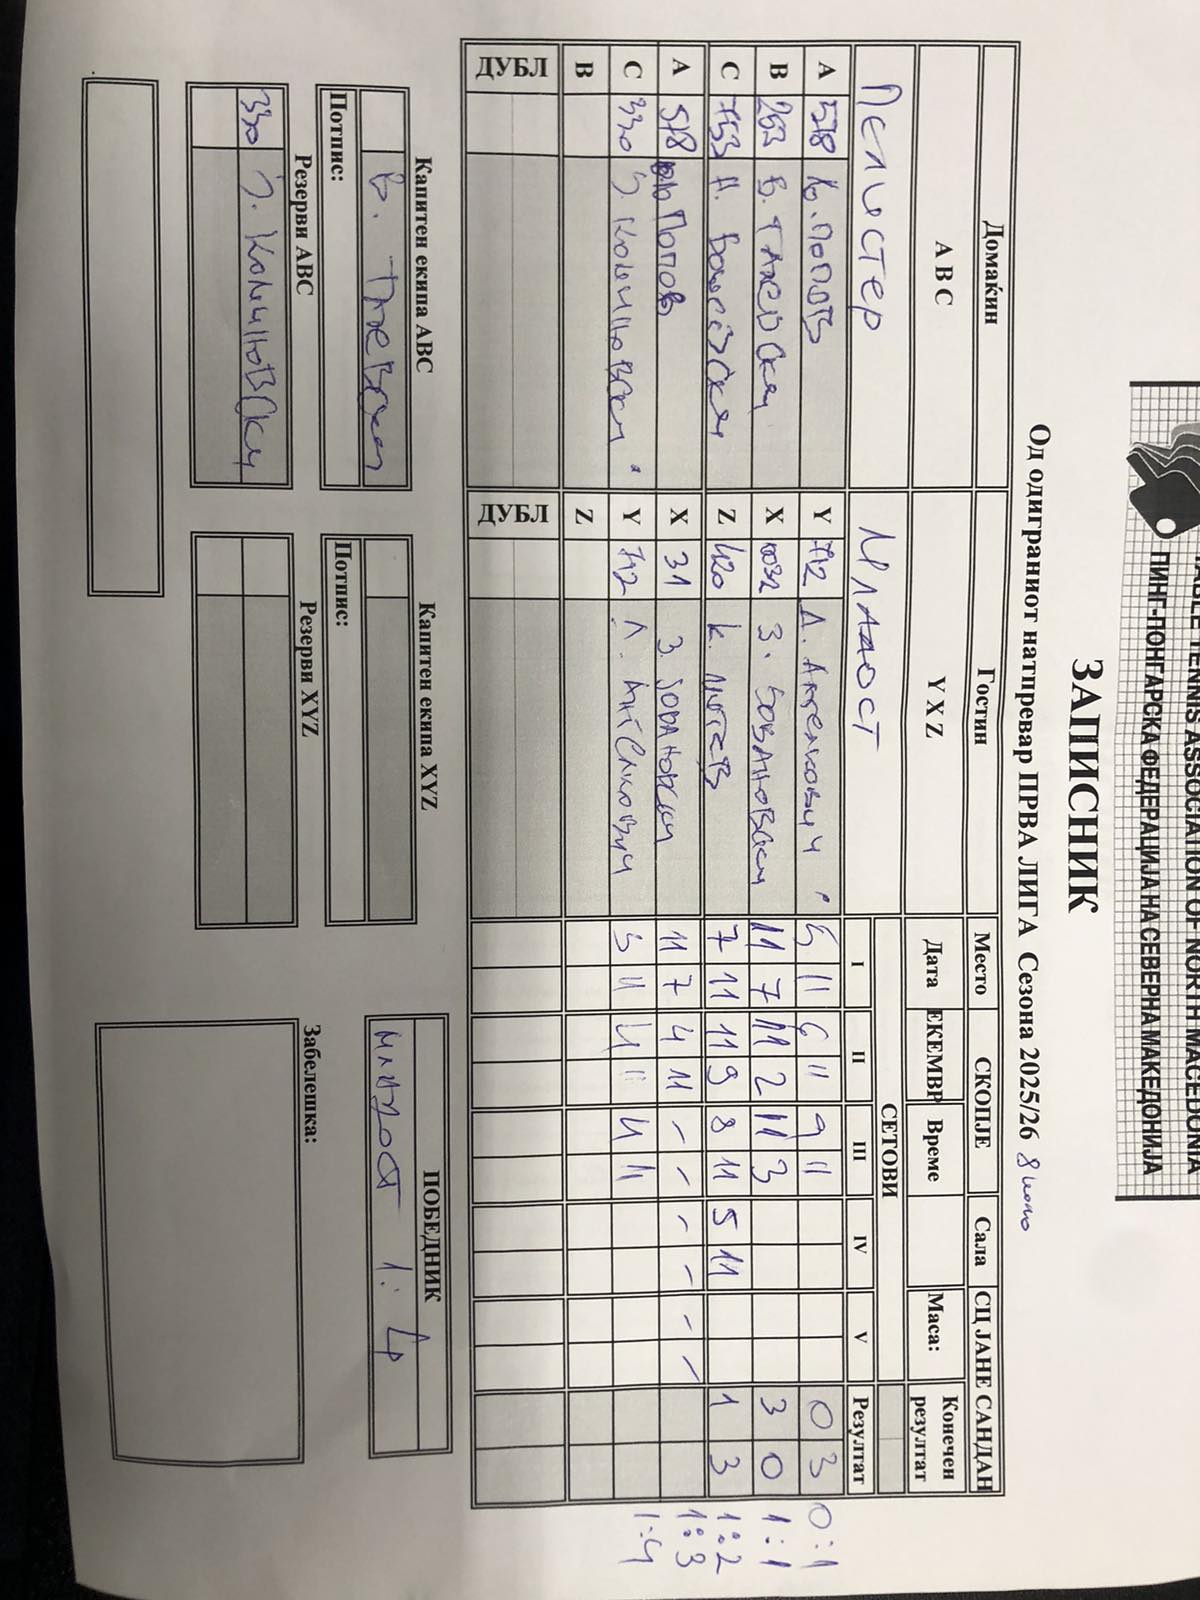 TABLE TENNIS ASSOCIATION OF NORTH MACEDONIA
ПИНГ-ПОНГАРСКА ФЕДЕРАЦИЈА НА СЕВЕРНА МАКЕДОНИЈА
ЗАПИСНИК
Од одиграниот натпревар ПРВА ЛИГА Сезона 2025/26 8 коло
Домаќин Гостин Место СКОПЈЕ Сала СЦ ЈАНЕ САНДАН
A B C Y X Z Дата ЕКЕМВР Време Маса: Конечен резултат
Пелистер Младост СЕТОВИ
I II III IV V Резултат
A 578 Поповъ Y 712 5 11 6 11 9 11 0 3 0:1
B 263 В. Таневски X З. Јовановски 11 7 11 2 11 3 3 0 1:1
C 753 Н. Z 420 К. 7 11 11 9 8 11 5 11 1 3 1:2
A 578 Попов X 31 З. Јовановски 11 7 4 11 - - - - - - 1:3
C 330 З. Колиновски Y 712 5 11 4 11 4 11 1:4
B Z
ДУБЛ ДУБЛ
Капитен екипа ABC Капитен екипа XYZ ПОБЕДНИК
В. Таневски Младост 1:4
Потпис: Потпис:
Резерви ABC Резерви XYZ Забелешка:
330 З. Колиновски